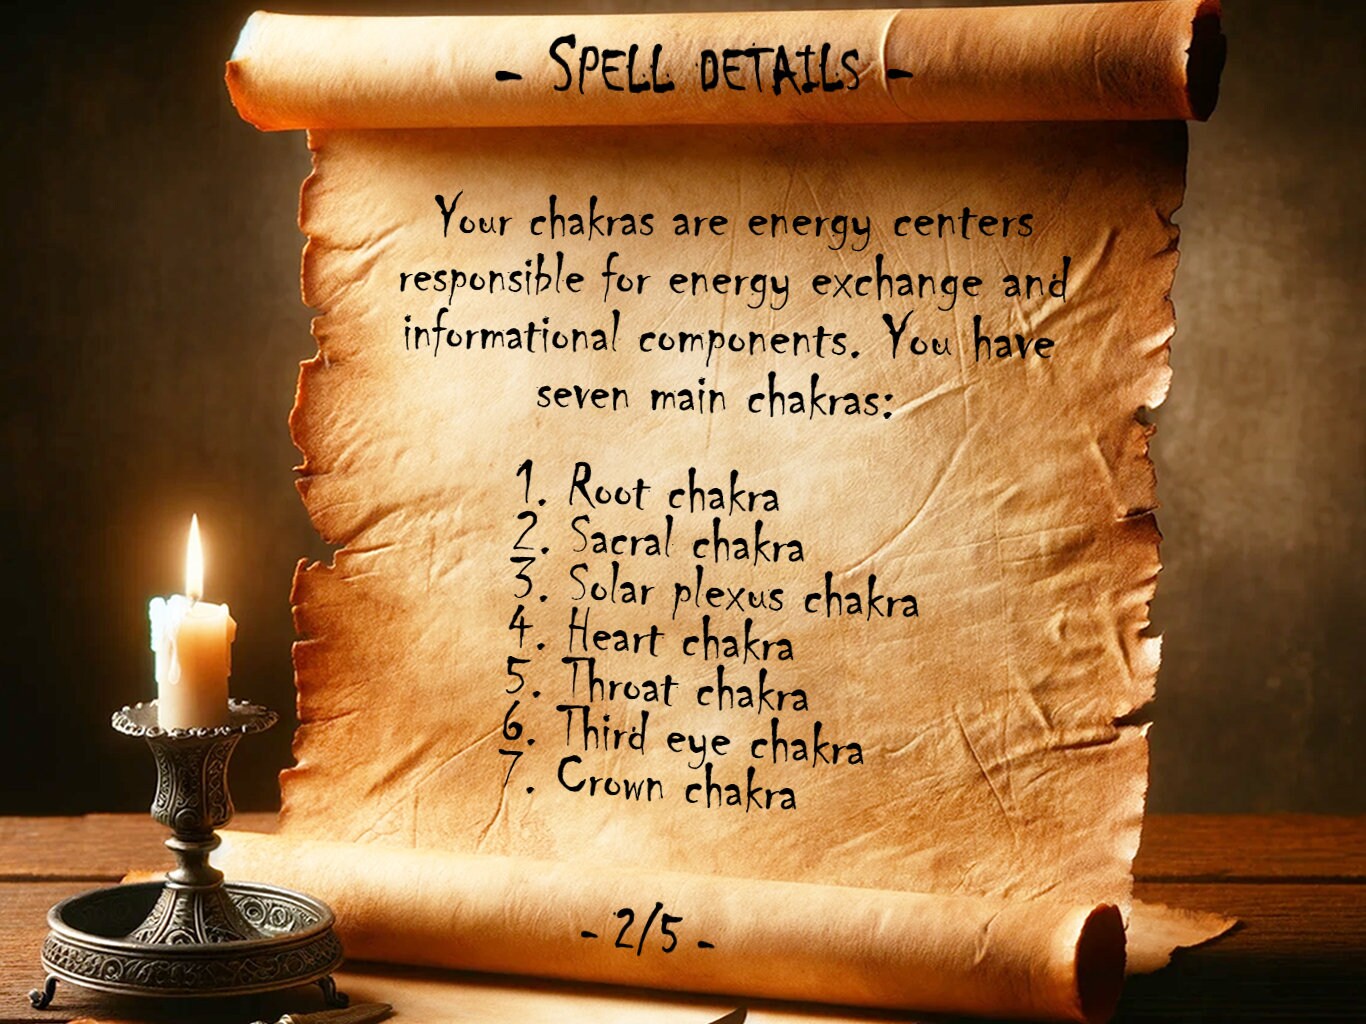 - SPELL DETAILS -
Your chakras are energy centers
responsible for energy exchange and
informational components. You have
seven main chakras:
1. Root chakra
2. Sacral chakra
3. Solar plexus chakra
4. Heart chakra
5. Throat chakra
6. Third eye chakra
7. Crown chakra
- 2/5 -